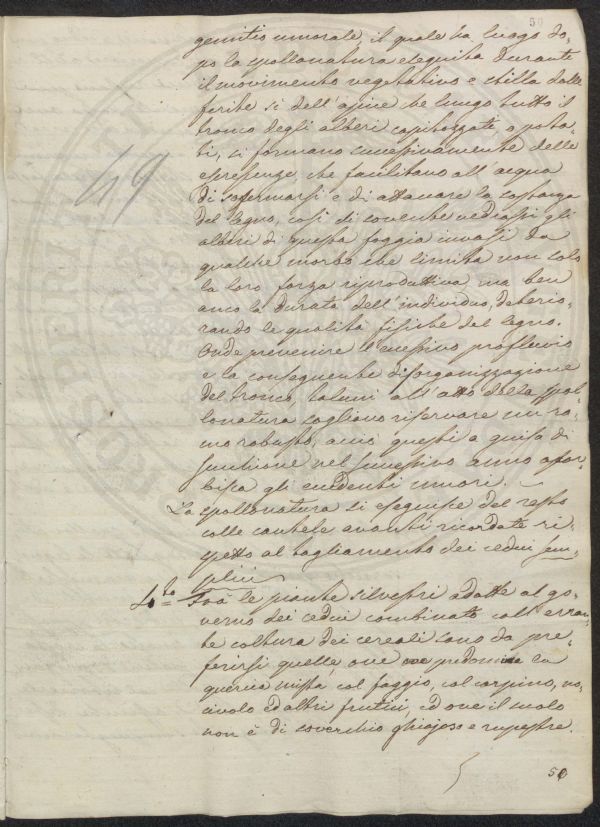 50
gemitio umorale il quale ha luogo do,
po la spollonatura eseguita durante
il movimento vegetativo e stilla dalle
ferite si dell'apice che lungo tutto il
tronco degli alberi capitozzati, o pota-
ti, si formano successivamente delle
escrescenze, che facilitano all'acqua
di soffermarsi e di attaccare la sostanza
del legno, così di sovente vedrassi gli
alberi di questa foggia invasi da
qualche morbo che limita non solo
la loro forza riproduttiva, ma ben
anco la durata dell'individuo, deterio-
rando le qualità fisiche del legno.
49
Onde prevenire l'eccessivo profluvio
e la conseguente disorganizzazione
del tronco taluni all'atto della spol-
lonatura sogliono riservare un ra-
mo robusto, acciò questi a guisa di
nel successivo anno assor-
bisca gli eccedenti umori.
La spollonatura si eseguisce del resto
colle cautele avanti ricordate ri-
spetto al tagliamento dei cedui sem-
plici
4to Frà le piante silvestri adatte al go-
verno dei cedui combinato coll'erran-
te coltura dei cereali sono da pre-
ferirsi quelle, ove predomina la
quercia mista col faggio, col carpino, no-
ciuolo ed altri frutici, ed ove il suolo
non è di soverchio ghiajoso e rupestre.
50